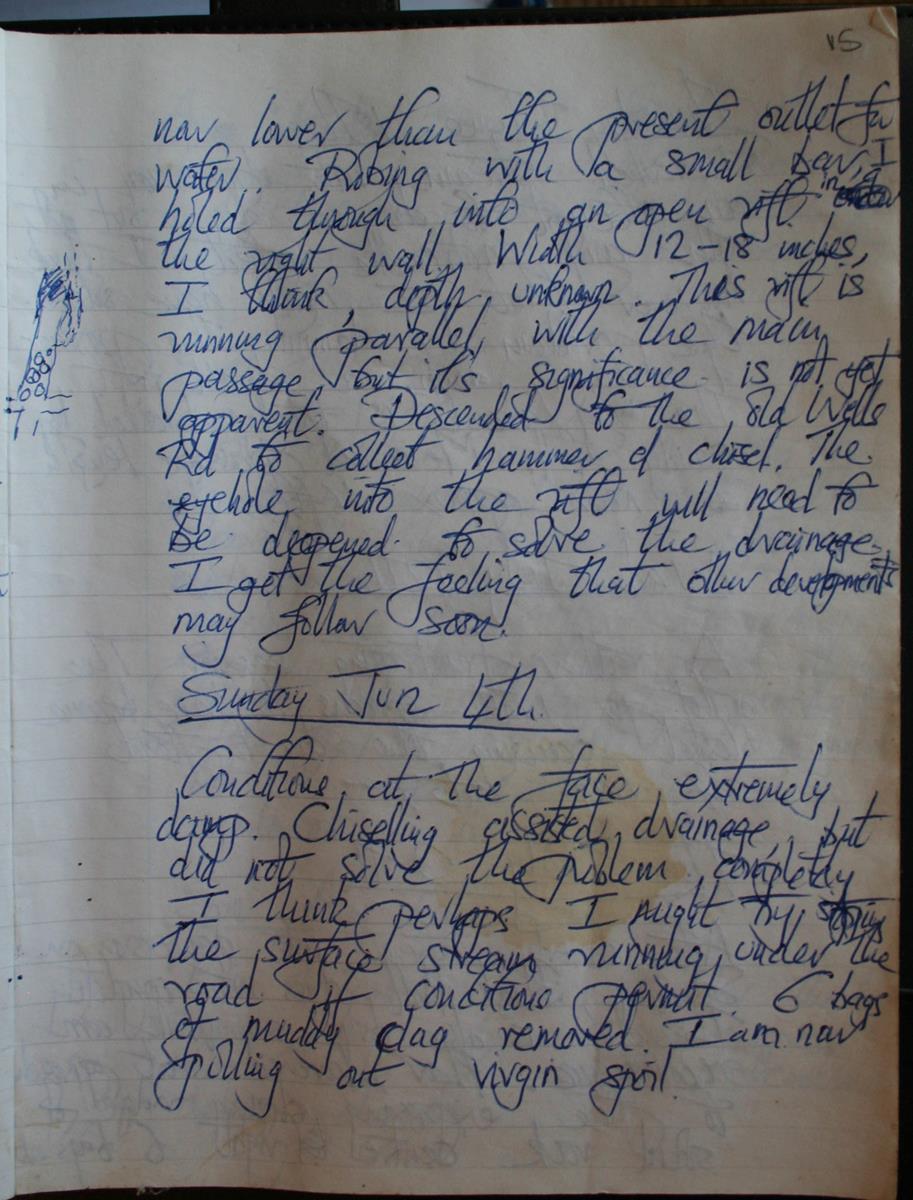 15
now lower than the present outlet for
water. Robing with a small bar, I
holed through into an open rift in
the right wall. Width 12-18 inches,
I think, depth unknown. This rift is
running parallel with the main
passage but it's significance is not yet
apparent. Descended to the old Wells
Rd to collect hammer & chisel. The
eyehole into the rift will need to
be deepened to solve the drainage.
I get the feeling that other developments
may follow soon.
Sunday Jun 4th.
Conditions at the face extremely
damp. Chiselling assisted drainage, but
did not solve the problem completely
I think perhaps I might try
the surface stream running under the
road if conditions permit. 6 bags
of muddy clag removed. I am now
pulling out virgin spoil.